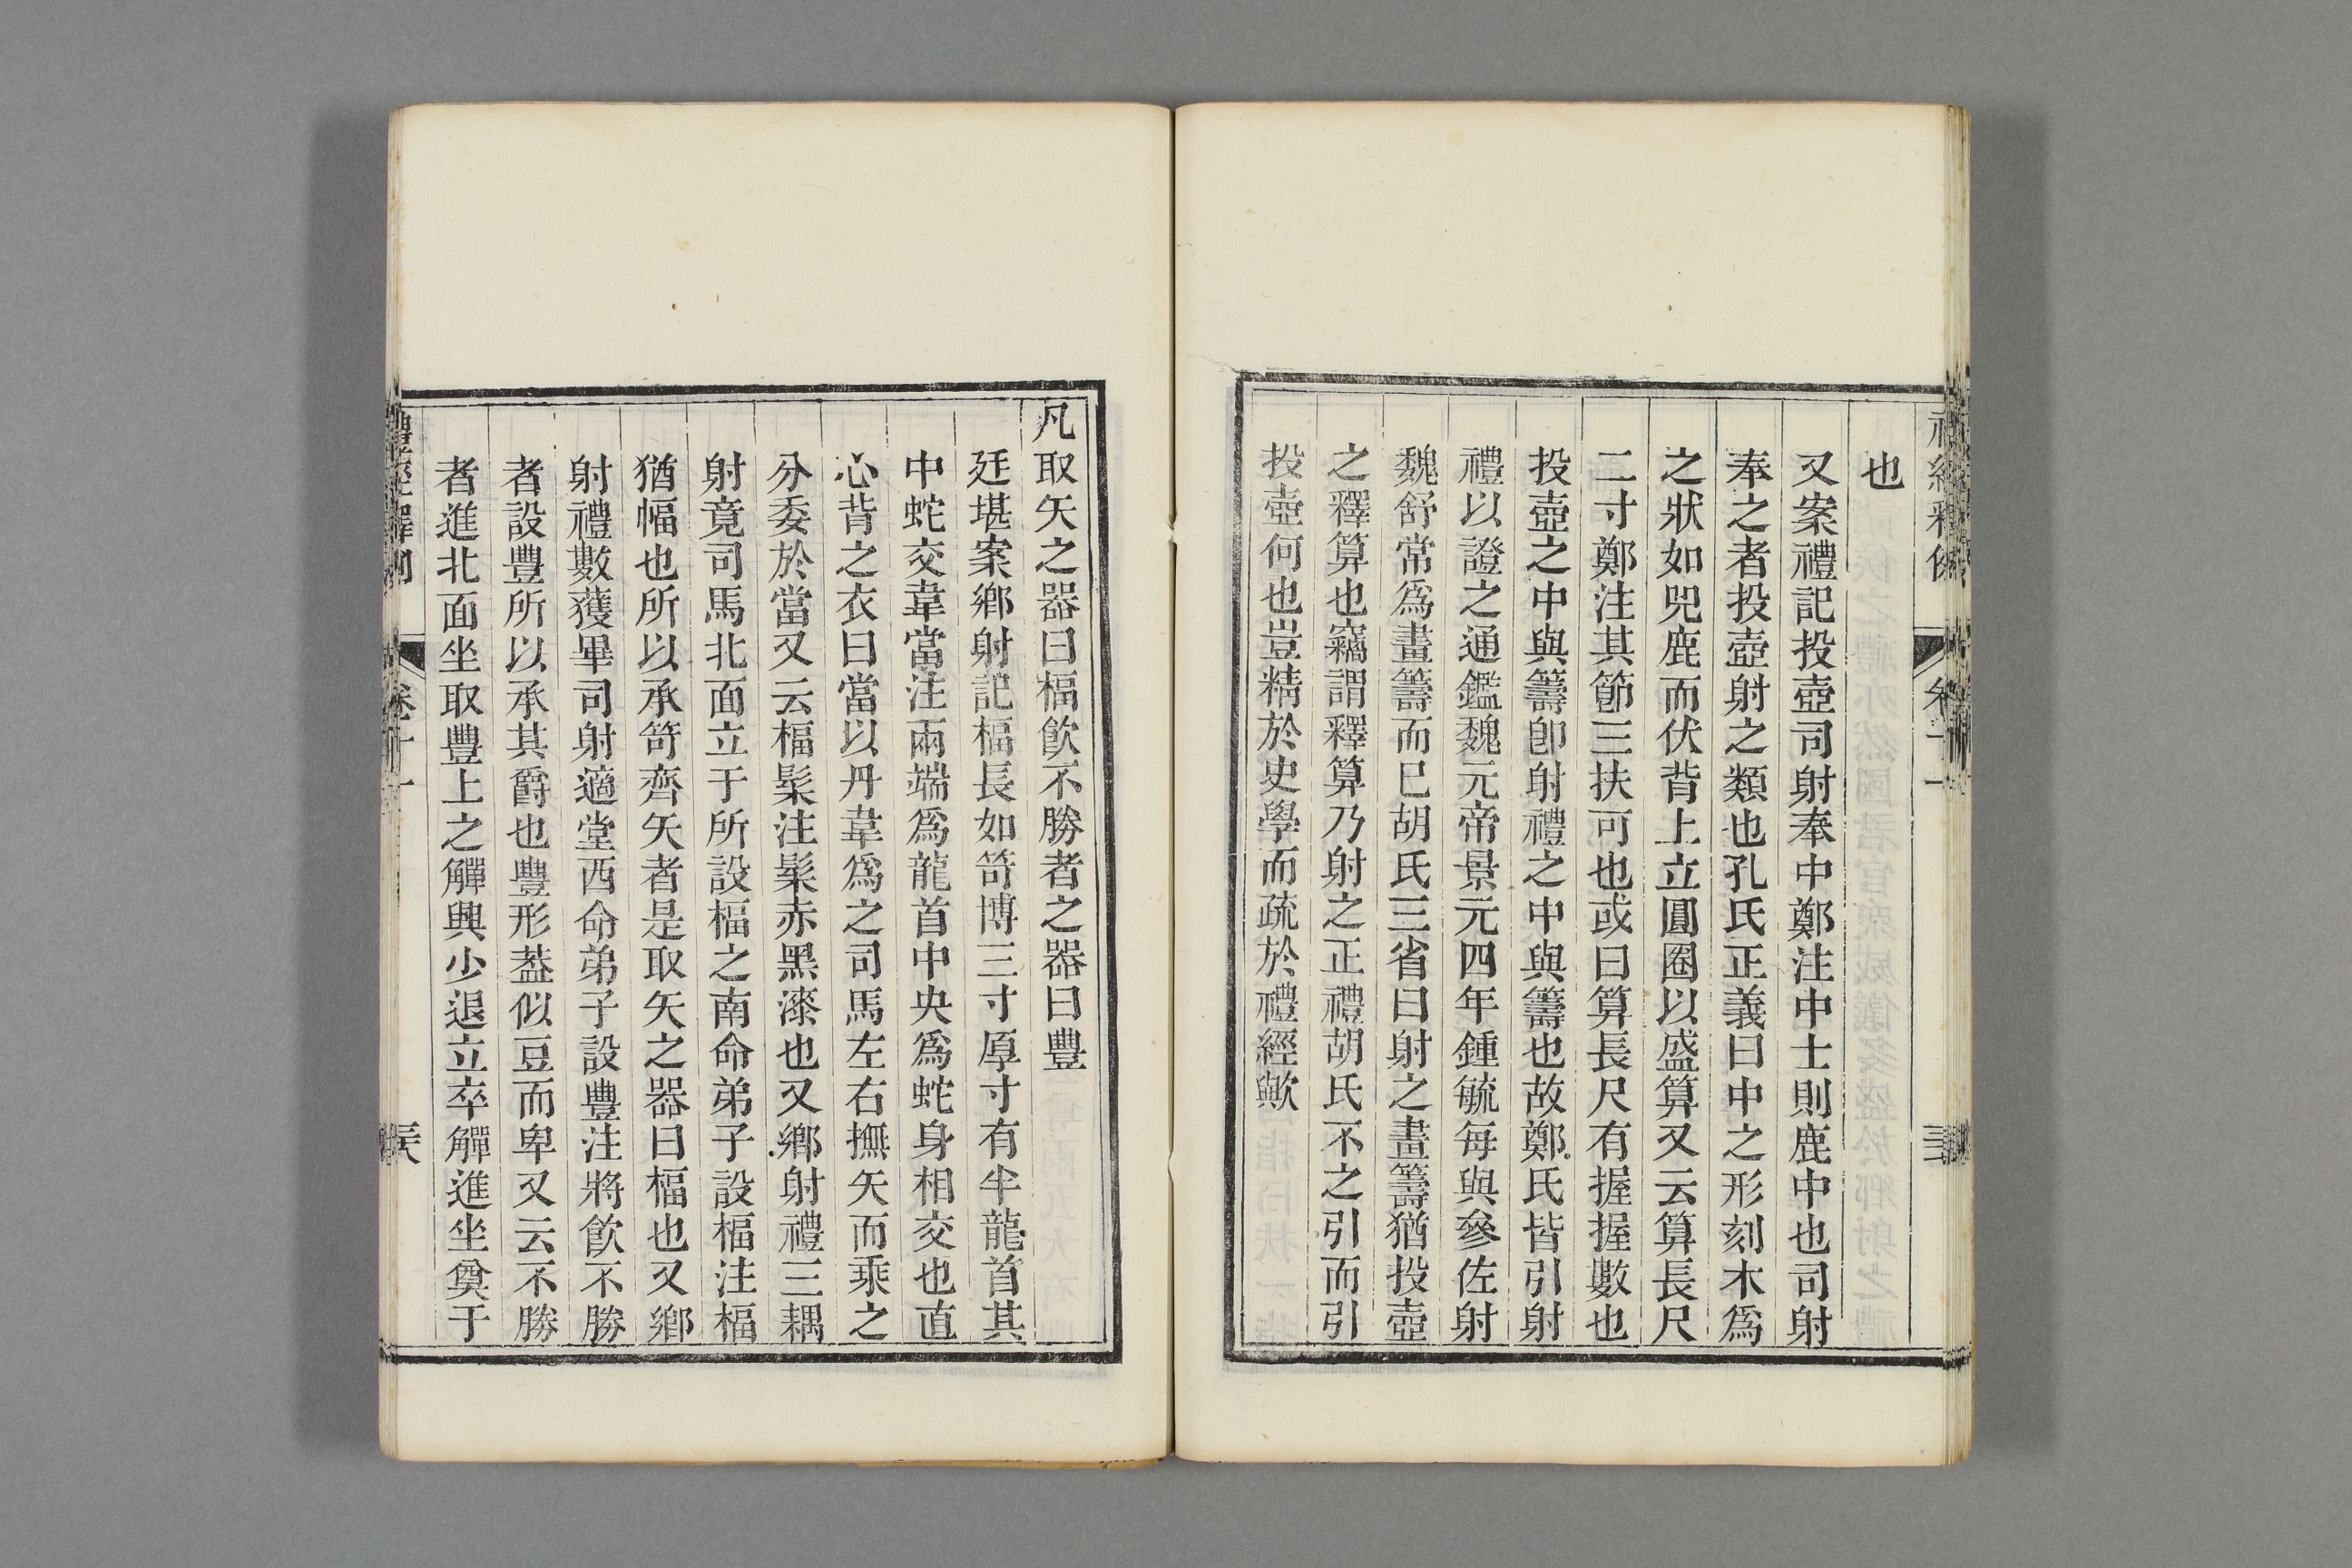 也
又案禮記投壺司射奉中鄭注中士則鹿中也司射
奉之者投壺射之類也孔氏正義曰中之形刻木爲
之狀如兕鹿而伏背上立圓圈以盛算又云算長尺
二寸鄭注其節三扶可也或曰算長尺有握握數也
投壺之中與籌卽射禮之中與籌也故鄭氏皆引射
禮以證之通鑑魏元帝景元四年鍾毓每與參佐射
魏舒常爲畫籌而已胡氏三省曰射之畫籌猶投壺
之釋算也竊謂釋算乃射之正禮胡氏不之引而引
投壺何也豈精於史學而疏於禮經歟
凡取矢之器曰楅飮不勝者之器曰豐
廷堪案鄉射記楅長如笴博三寸厚寸有半龍首其
中蛇交韋當注兩端爲龍首中央爲蛇身相交也直
心背之衣曰當以丹韋爲之司馬左右撫矢而乘之
分委於當又云楅髤注髤赤黑漆也又鄉射禮三耦
射竟司馬北面立于所設楅之南命弟子設楅注楅
猶幅也所以承笴齊矢者是取矢之器曰楅也又鄉
射禮數獲畢司射適堂西命弟子設豐注將飮不勝
者設豐所以承其爵也豐形葢似豆而卑又云不勝
者進北面坐取豐上之觶興少退立卒觶進坐奠于
卷十一